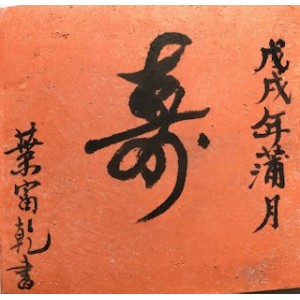 戊戌年蒲月
寿
葉富乾書